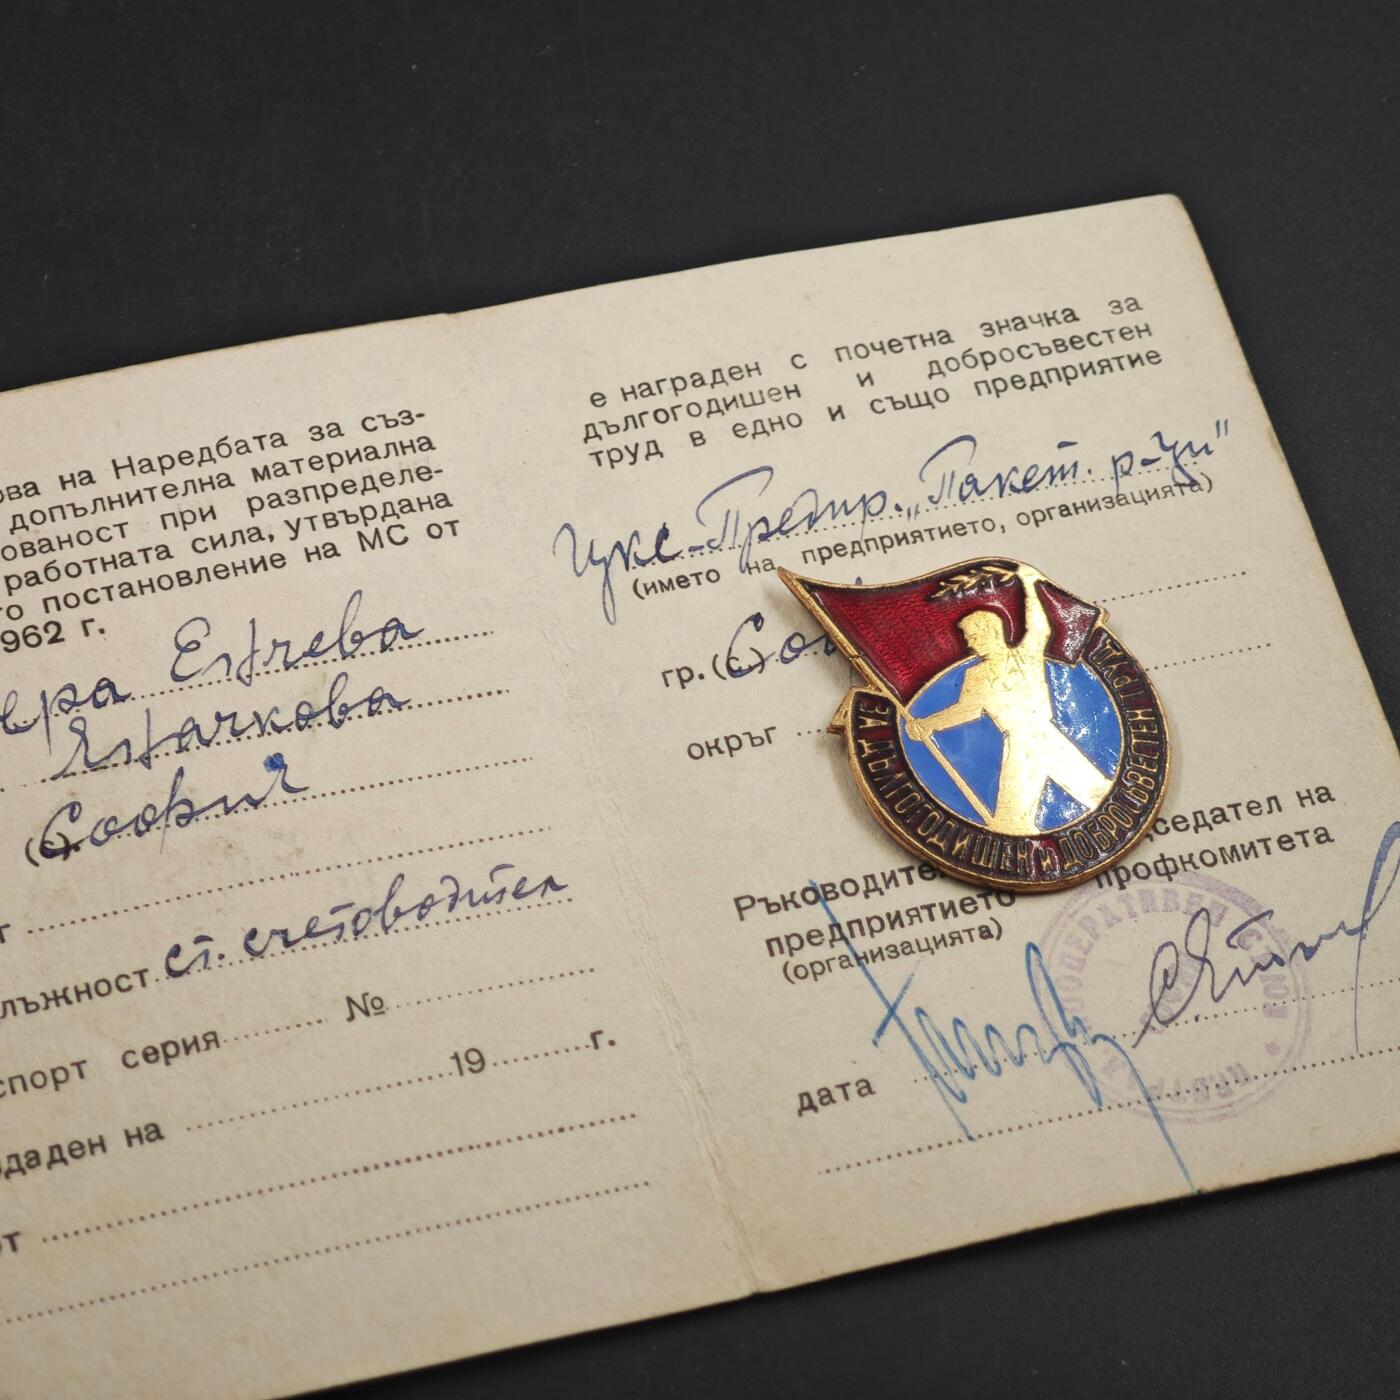 ова на Наредбата за съз-
допълнителна материална
ованост при разпределе-
работната сила, утвърдана
то постановление на МС от
962 г.
ера Енчева
Яначкова
(с). София
г
лъжност ст. счетоводител
спорт серия № 
19 г.
даден на
от
е награден с почетна значка за
дългогодишен и добросъвестен
труд в едно и също предприятие
Цкс-Предпр. „Пакет. р-ци"
(името на предприятието, организацията)
гр. (с) Со
окръг
ЗА ДЪЛГОГОДИШЕН и ДОБРОСЪВЕСТЕН ТРУД
Ръководите седател на
предприятието профкомитета
(организацията)
КООПЕРАТИВЕН СЪЮЗ
дата